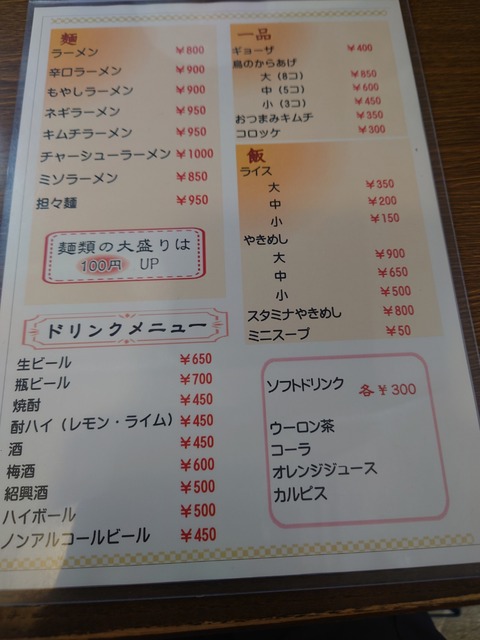 麺
ラーメン ￥800
辛口ラーメン ￥900
もやしラーメン ￥900
ネギラーメン ￥950
キムチラーメン ￥950
チャーシューラーメン ￥1000
ミソラーメン ￥850
担々麺 ￥950
麺類の大盛りは
100円 UP
一品
ギョーザ ￥400
鳥のからあげ
大（8コ） ￥850
中（5コ） ￥600
小（3コ） ￥450
おつまみキムチ ￥350
コロッケ ￥300
飯
ライス
大 ￥350
中 ￥200
小 ￥150
やきめし
大 ￥900
中 ￥650
小 ￥500
スタミナやきめし ￥800
ミニスープ ￥50
ドリンクメニュー
生ビール ￥650
瓶ビール ￥700
焼酎 ￥450
酎ハイ（レモン・ライム） ￥450
酒 ￥450
梅酒 ￥600
紹興酒 ￥500
ハイボール ￥500
ノンアルコールビール ￥450
ソフトドリンク 各￥300
ウーロン茶
コーラ
オレンジジュース
カルピス